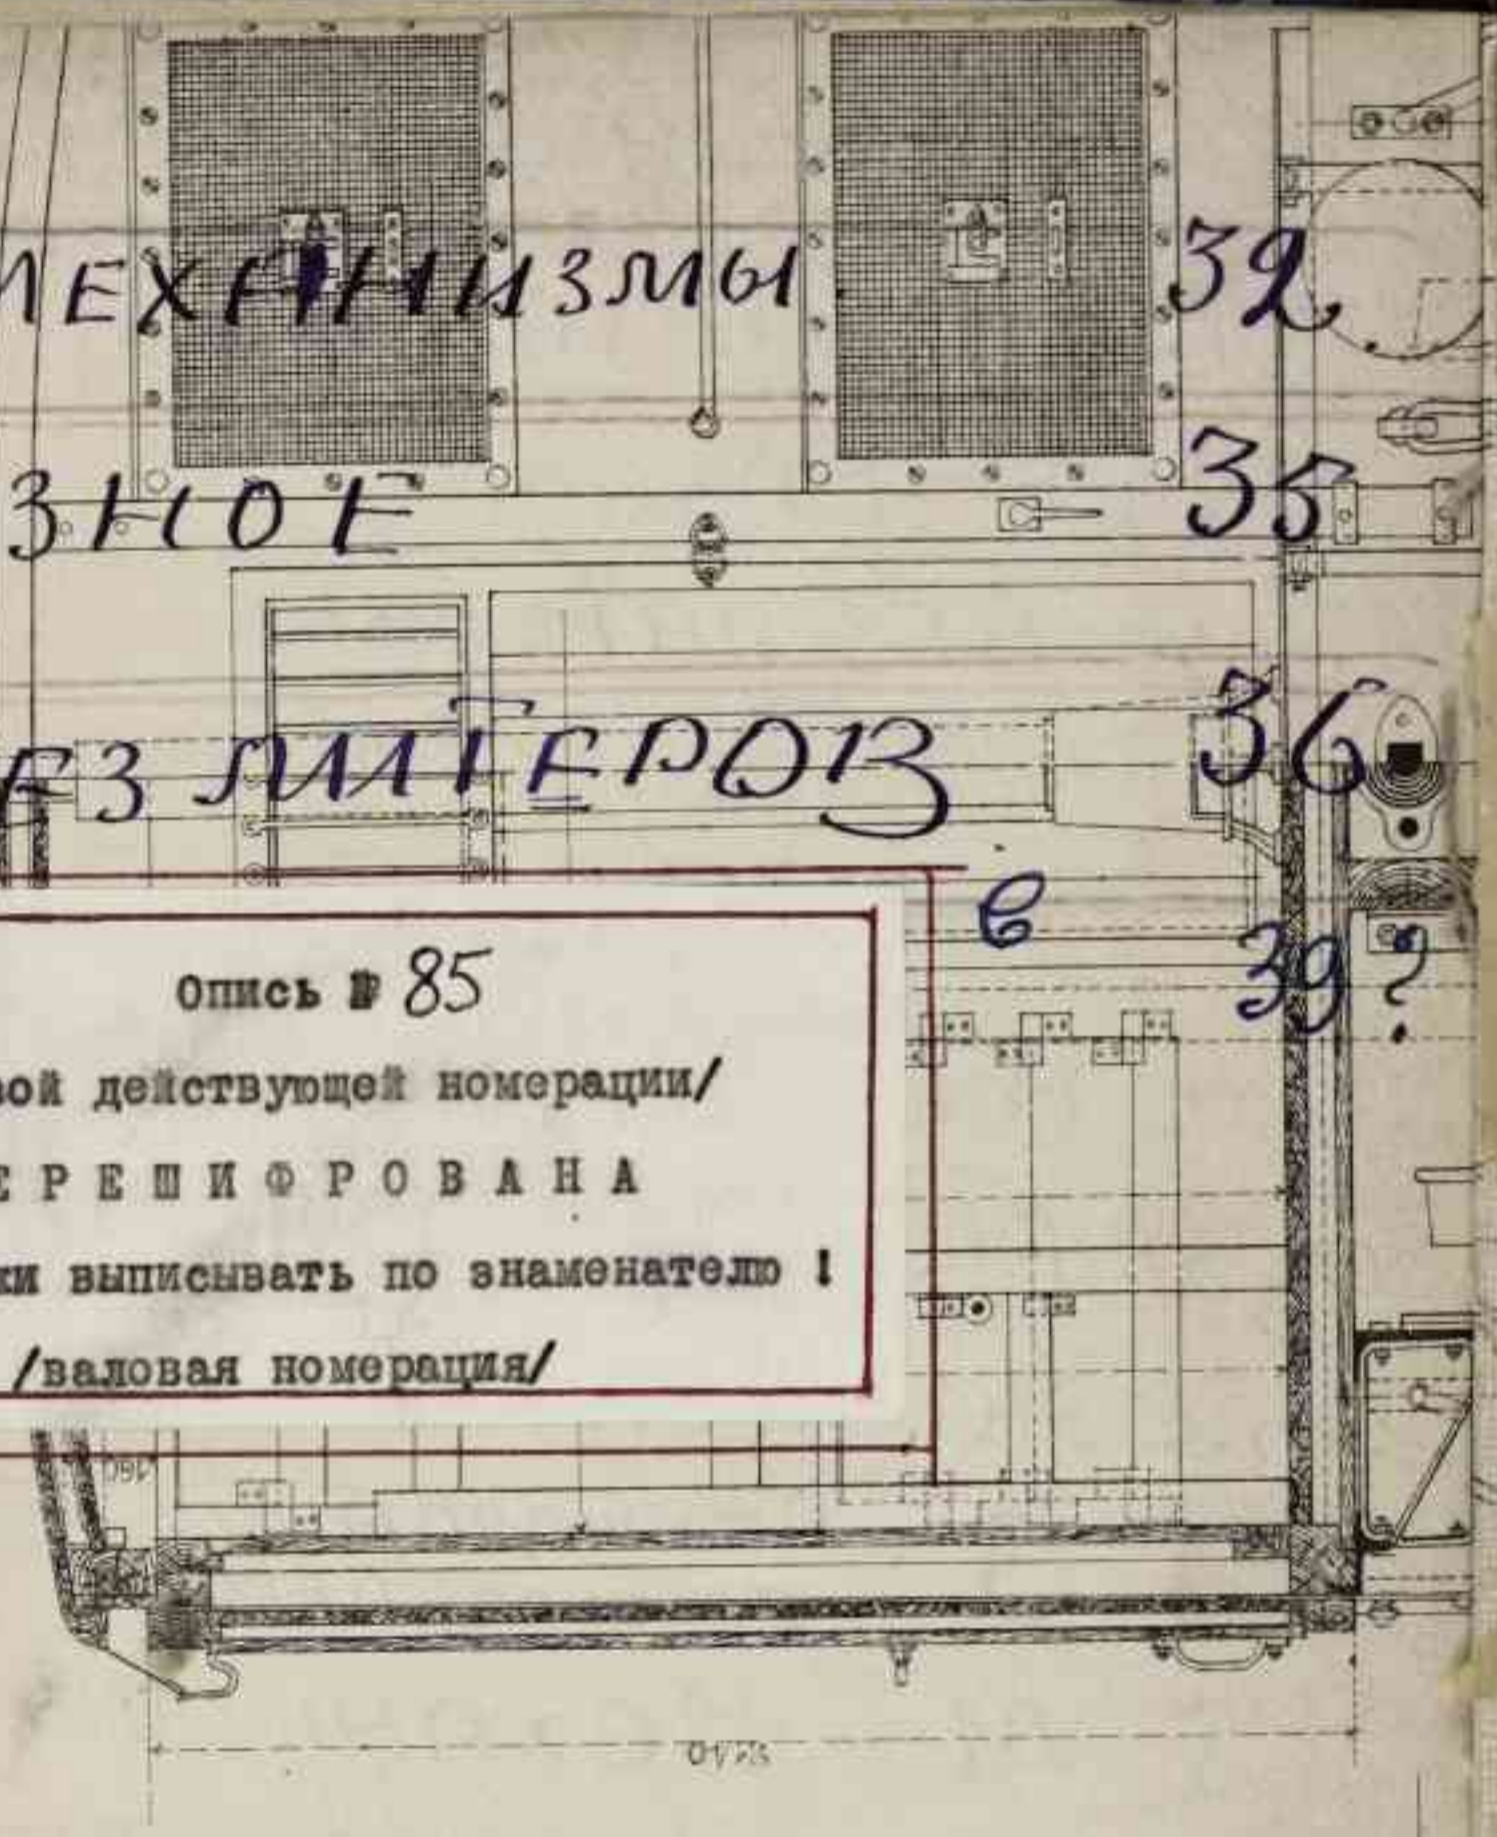 МЕХАНИЗМЫ 32
ЗНОЕ 35
ЕЗ ЛИТЕРОВ 36
в 39?
Опись № 85
вой действующей номерации/
ЕРЕШИФРОВАНА
ки выписывать по знаменателю !
/валовая номерация/